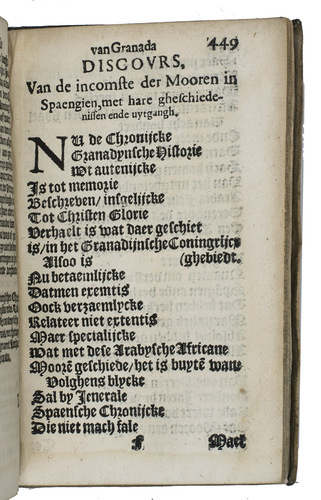 van Granada 449
DISCOVRS,
Van de incomste der Mooren in
Spaengien, met hare gheschiede-
nissen ende uytgangh.
NU de Chronijcke
Granadynsche Historie
Wt autenijcke
Is tot memorie
Beschreven/ insgelijcke
Tot Christen Glorie
Verhaelt is wat daer geschiet
is/ in het Granadijnsche Coningrijcx
Alsoo is (ghebiedt.
Nu betaemlijcke
Datmen exemtis
Oock verzaemlycke
Relateer niet extentis
Maer specialijcke
Wat met dese Arabysche Africane
Moorē geschiede/ het is buytē wane
Volghens blycke
Sal by Jenerale
Spaensche Chronijcke
Die niet mach fale
Maer